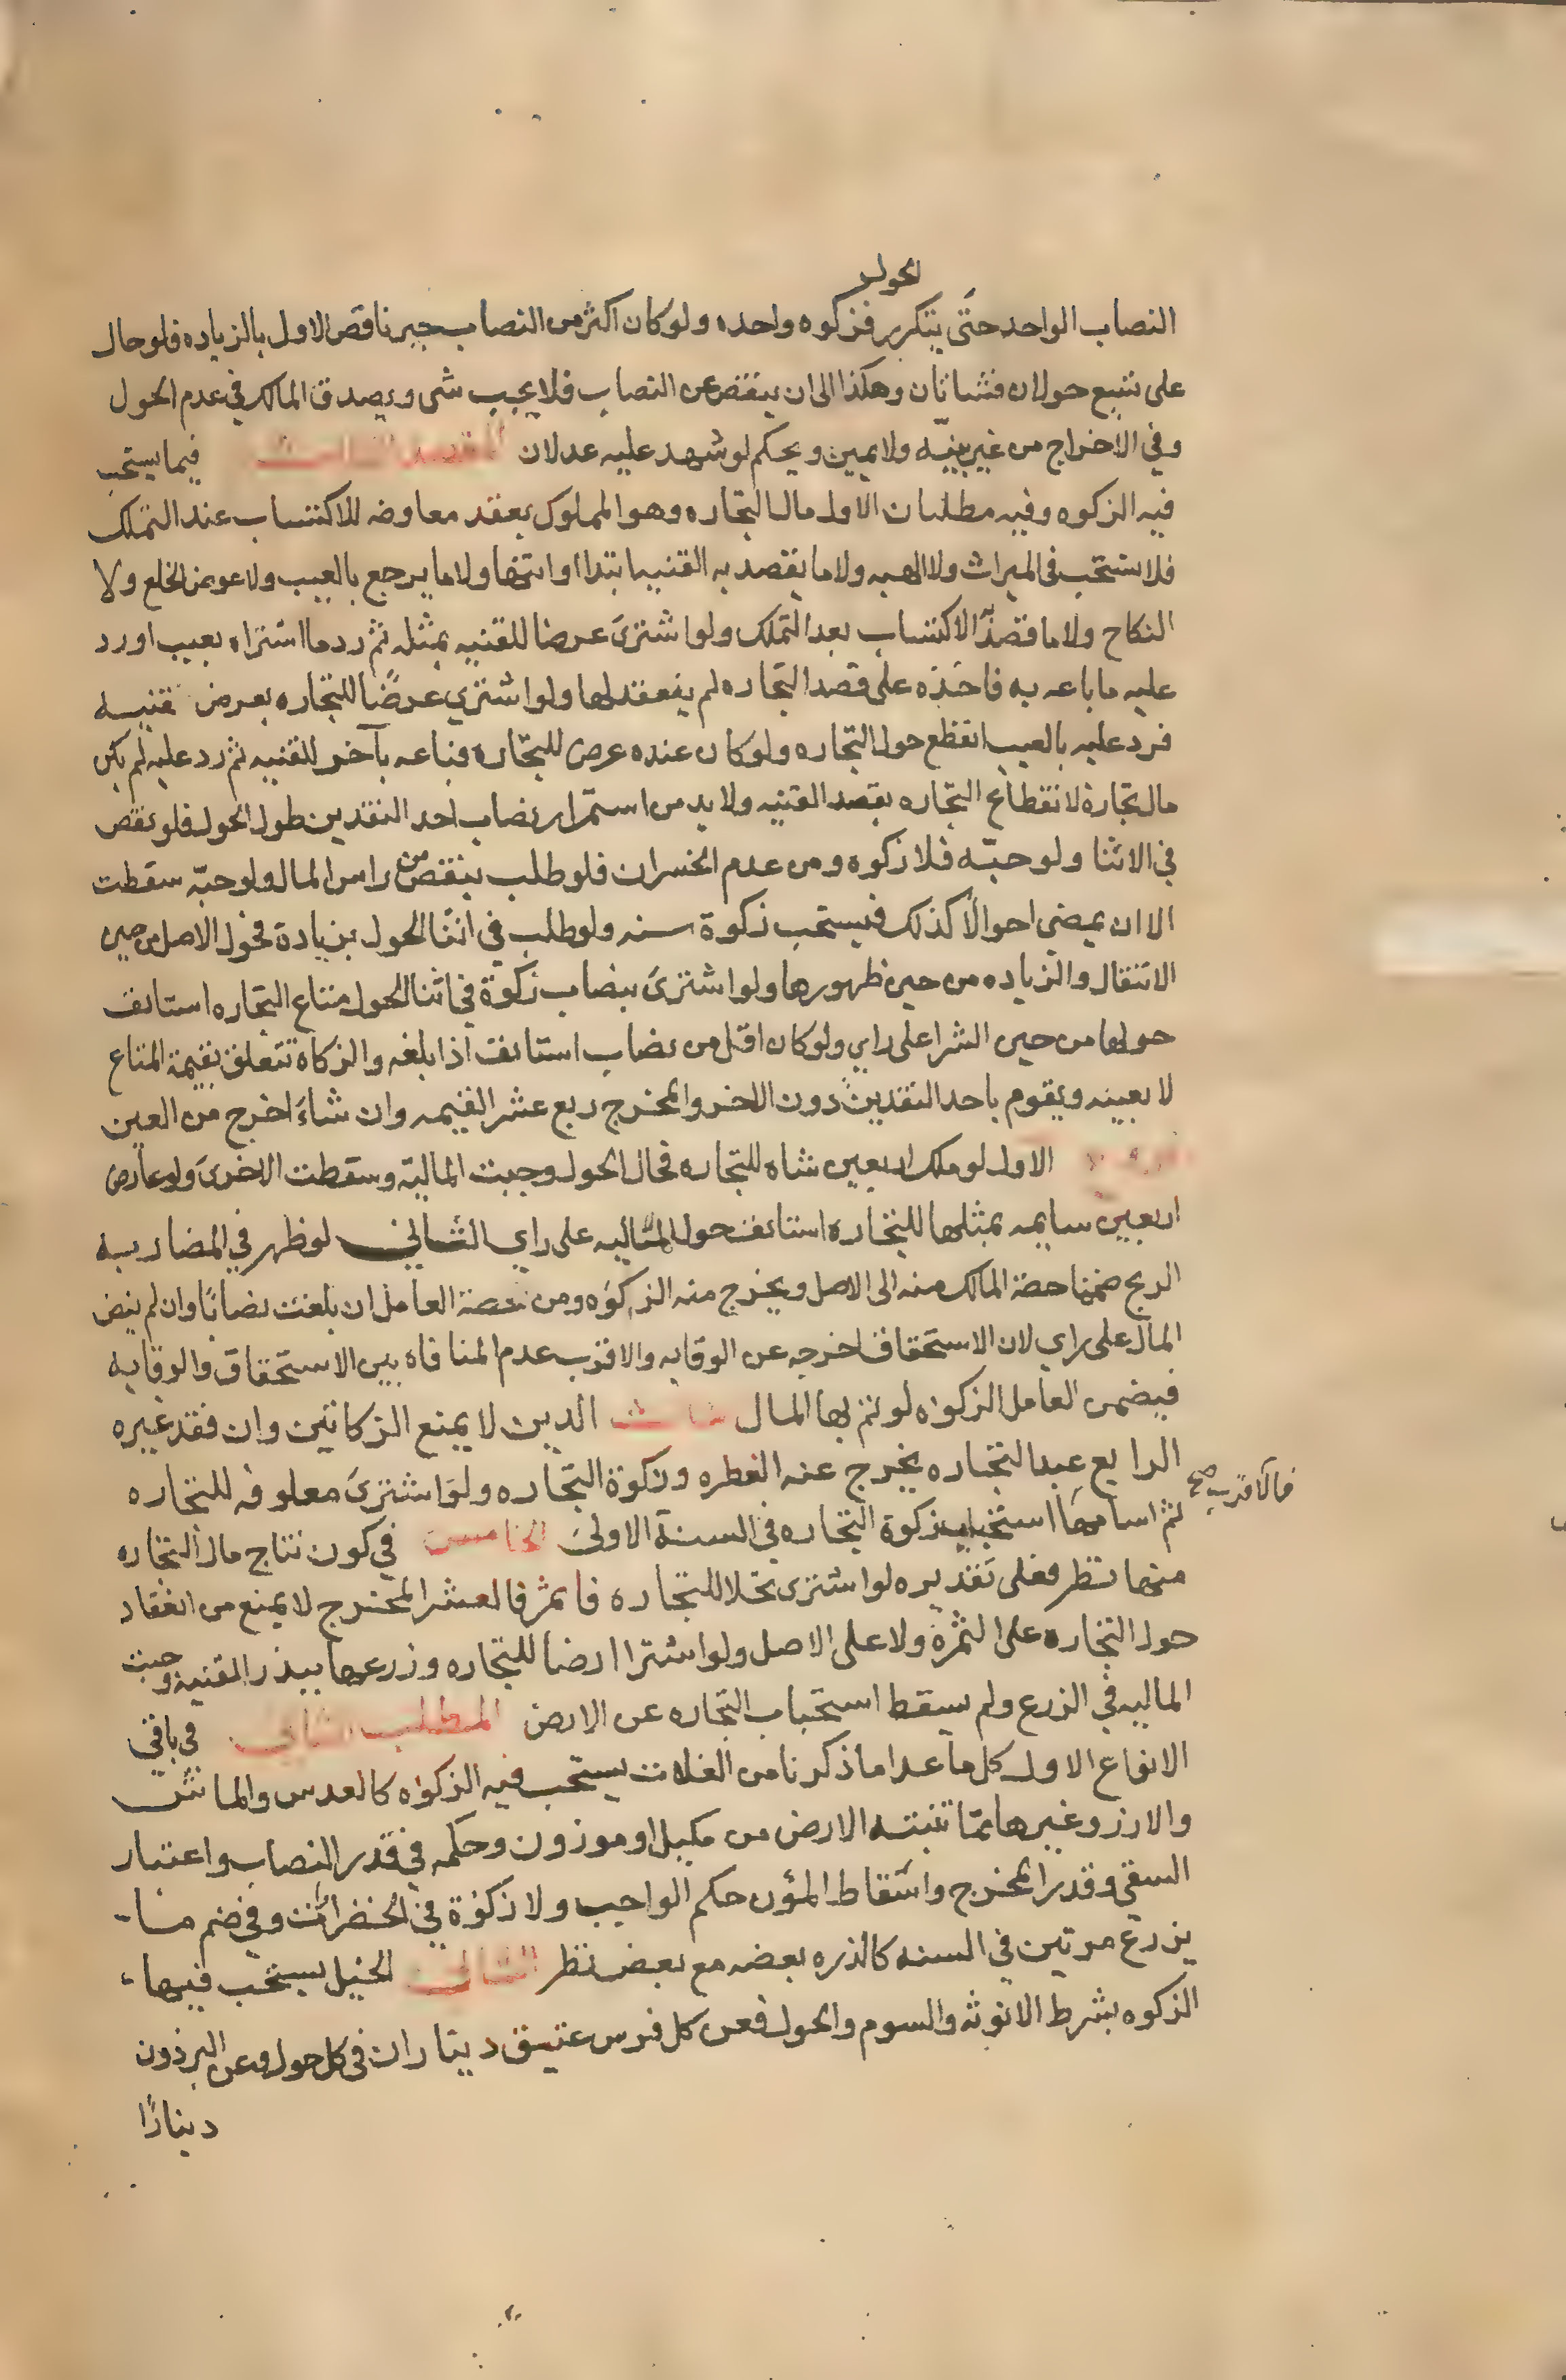 الحول
النصاب الواحد حتى يتكرر فزكوه واحده ولو كان اكثر من النصاب جبر ناقص الاول بالزياده فلو حال
على تسع حولان فشاتان وهكذا الى ان ينقص عن النصاب فلا يجب شى ويصدق المالك في عدم الحول
وفي الاخراج من غير بينه ولا يمين ويحكم لو شهد عليه عدلان المقصد الثالث فيما يستحب
فيه الزكوه وفيه مطلبان الاول مال التجاره وهو المملوك بعقد معاوضه للاكتساب عند التملك
فلا يستحب في الميراث ولا الهبه ولا ما يقصد به القنيه ابتدا او انتها ولا ما يرجع بالعيب ولا عوض الخلع ولا
النكاح ولا ما قصد الاكتساب بعد التملك ولو اشترى عرضا للقنيه بمثله ثم رد ما اشتراه بعيب او رد
عليه ما باعه به فاخذه على قصد التجاره لم ينعقد لها ولو اشترى عرضًا للتجاره بعرض قنيه
فرد عليه بالعيب انقطع حول التجاره ولو كان عنده عرض للتجاره فباعه بآخر للقنيه ثم رد عليه لم يكن
مال تجارة لانقطاع التجاره بقصد القنيه ولا بد من استمرار نصاب احد النقدين طول الحول فلو نقص
في الاثنا ولو حبّه فلا زكوه ومن عدم الخسران فلو طلب بنقص من راس المال ولو حبّه سقطت
الا ان يمضى احوالًا كذلك فيستحب زكوة سنه ولو طلب في اثنا الحول بزيادة فحول الاصل من حين
الانتقال والزياده من حين ظهورها ولو اشترى بنصاب زكوة في اثنا الحول متاع التجاره استانف
حولها من حين الشرا على راي ولو كان اقل من نصاب استانف اذا بلغه والزكاة تتعلق بقيمة المتاع
لا بعينه ويقوم باحد النقدين دون الاخر والمخرج ربع عشر القيمه وان شاء اخرج من العين
فروع الاول لو ملك اربعين شاه للتجاره فحال الحول وجبت المالية وسقطت الاخرى ولو عارض
اربعين سايمه بمثلها للتجاره استانف حول الماليه على راي الثاني لو ظهر في المضاربه
الربح ضمنا حصة المالك منه الى الاصل ويخرج منه الزكوه ومن حصة العامل ان بلغت نصابًا وان لم ينض
المال على راي لان الاستحقاق اخرجه عن الوقايه والاقرب عدم المنافاه بين الاستحقاق والوقايه
فيضمن العامل الزكوه لو تم بها المال الثالث الدين لا يمنع الزكاتين وان فقد غيره
الرابع عبد التجاره يخرج عنه الفطره وزكوة التجاره ولو اشترى معلوفه للتجاره
فالاقرب صح
ثم اسامها استحباب زكوة التجاره في السنة الاولى الخامس في كون نتاج مال التجاره
منها نظر فعلى تقديره لو اشترى نخلا للتجاره فاثمر فالعشر المخرج لا يمنع من انعقاد
حول التجاره على الثمرة ولا على الاصل ولو اشترا ارضا للتجاره وزرعها ببذر القنيه وجبت
الماليه في الزرع ولم يسقط استحباب التجاره عن الارض المطلب الثاني في باقي
الانواع الاول كل ما عدا ما ذكرنا من الغلات يستحب فيه الزكوه كالعدس والماش
والارز وغيرها ممّا تنبته الارض من مكيل او موزون وحكمه في قدر النصاب واعتبار
السقي وقدر المخرج واسقاط المؤن حكم الواجب ولا زكوة في الخضراوات وفي ضم ما
يزرع مرتين في السنه كالذره بعضه مع بعض نظر الثاني الخيل يستحب فيها
الزكوه بشرط الانوثه والسوم والحول فعن كل فرس عتيق ديناران في كل حول وعن البرذون
دينارًا